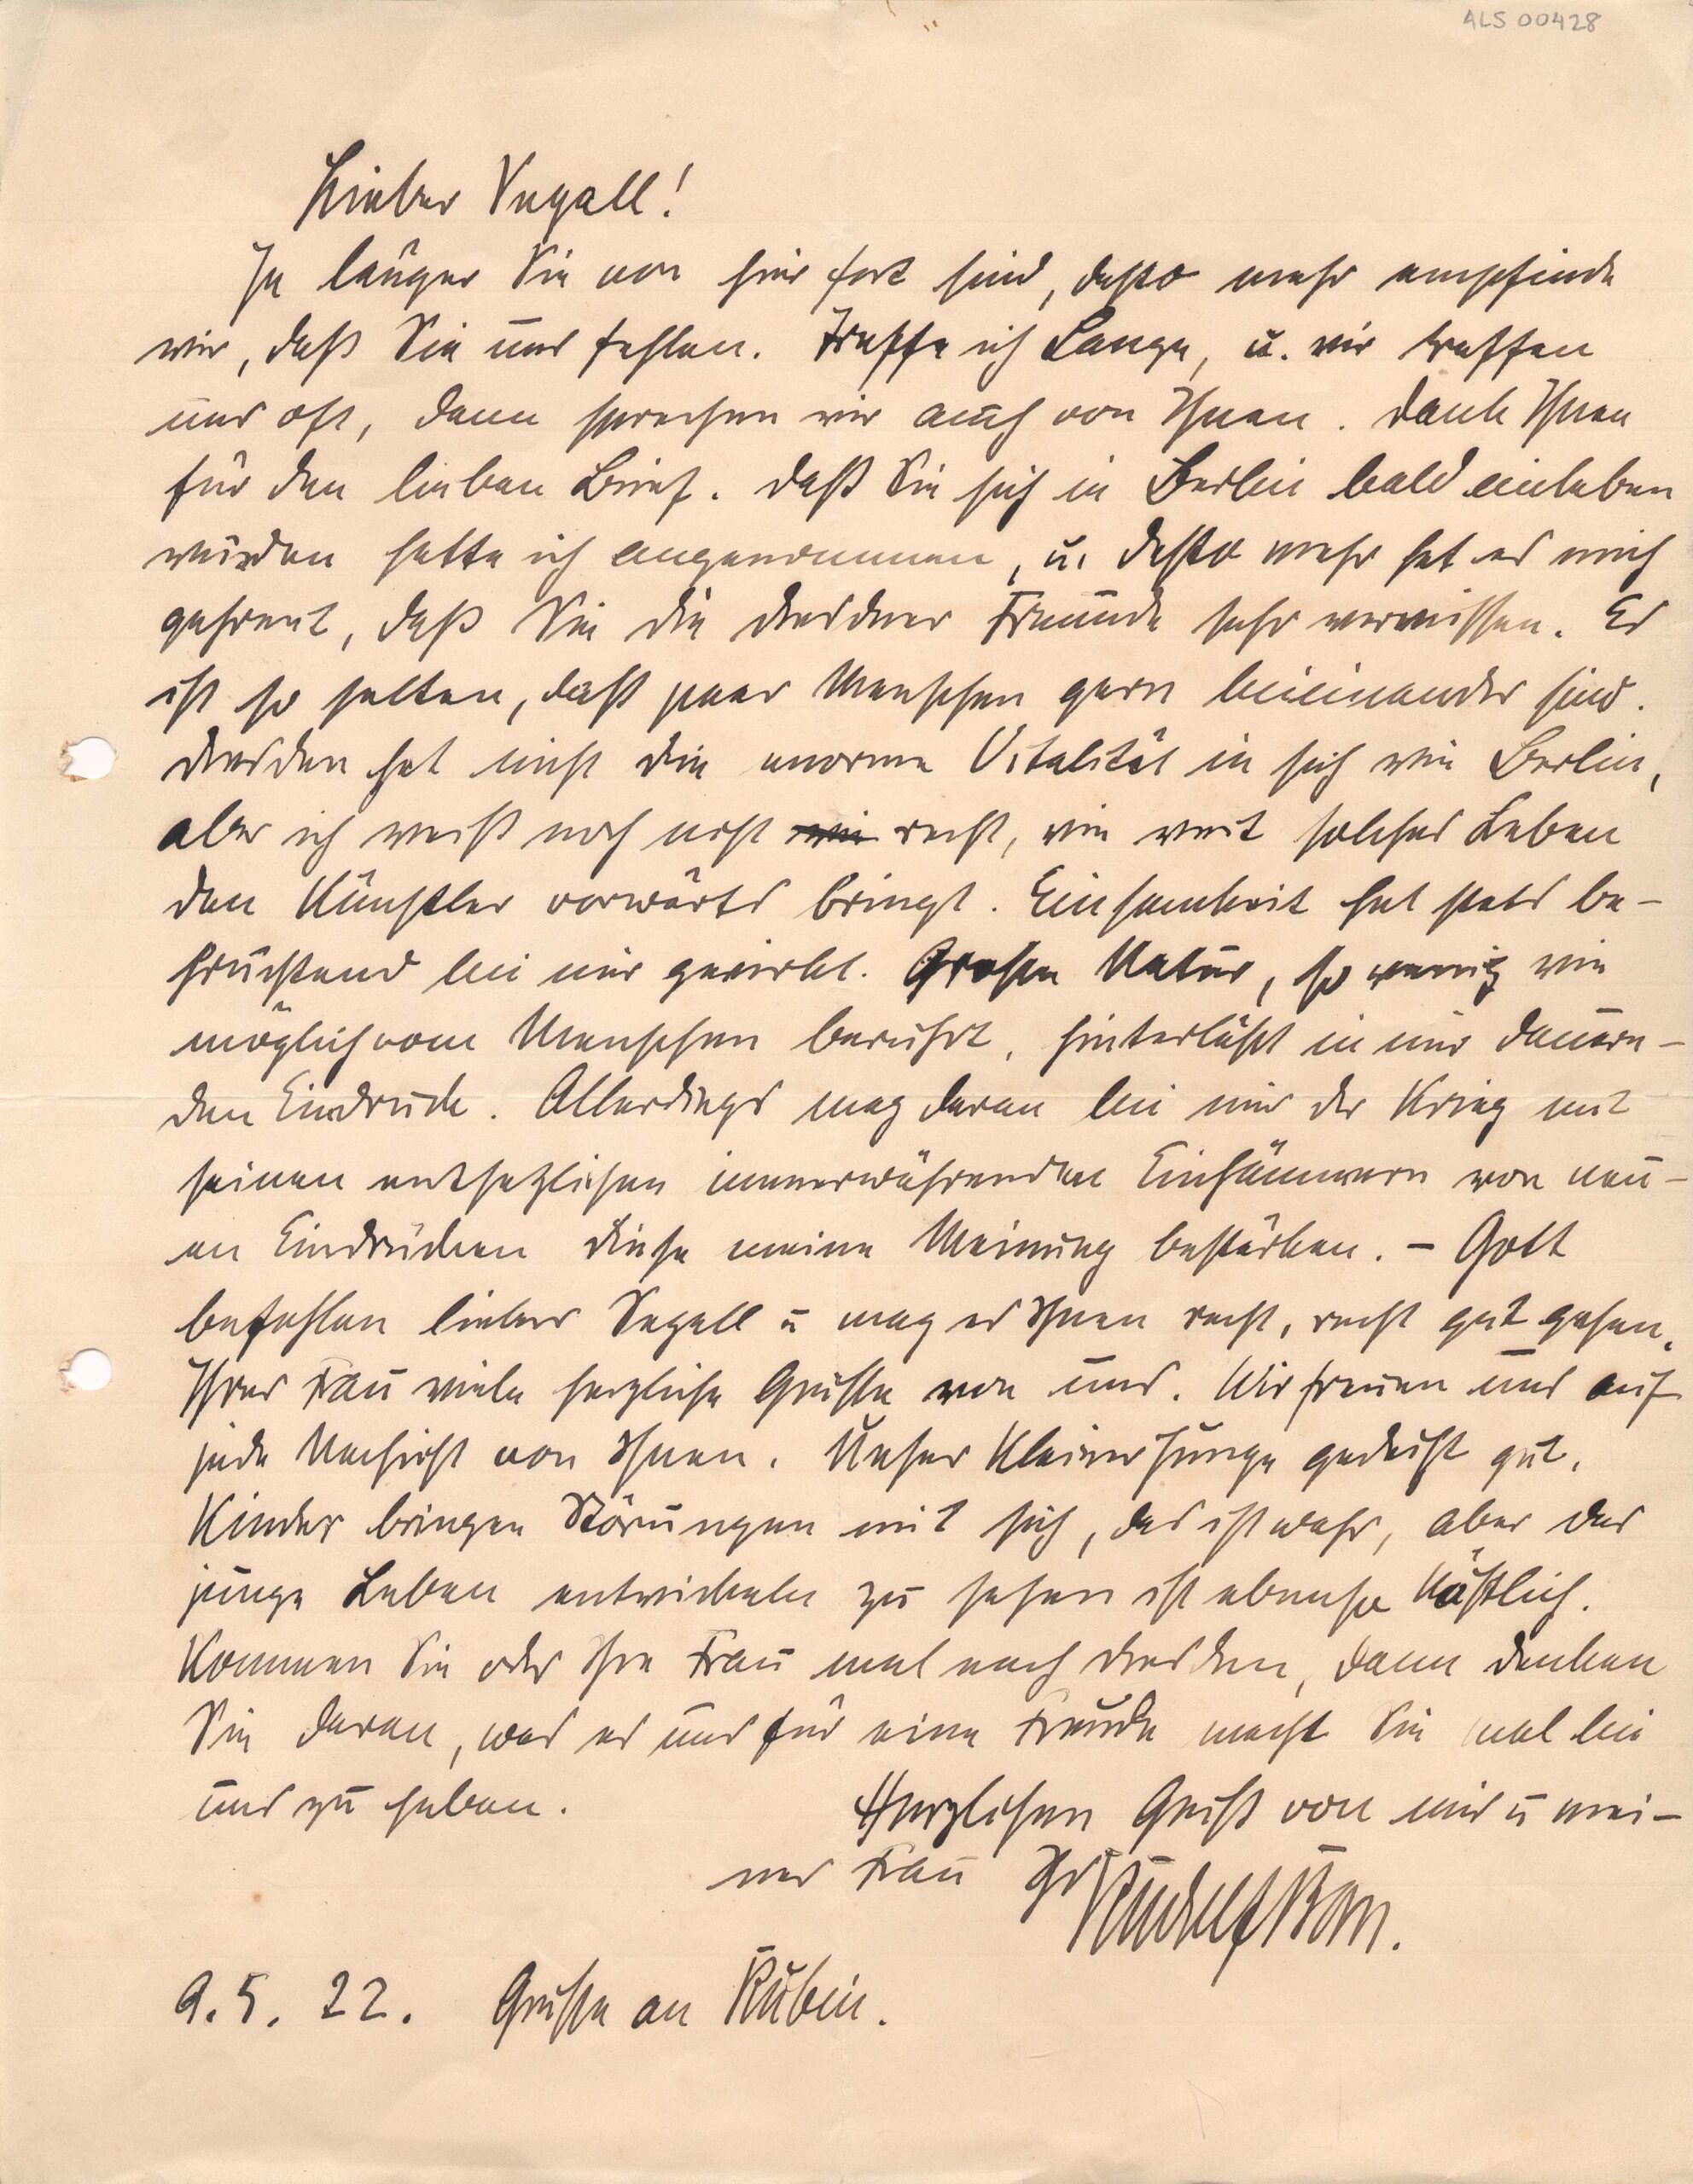 ALS 00428
Lieber Segall!
Je länger Sie von hier fort sind, desto mehr empfinde
wir, daß Sie uns fehlen. Treffe ich Lange, u. wir treffen
uns oft, dann sprechen wir auch von Ihnen. Dank Ihnen
für den lieben Brief. Daß Sie sich in Berlin bald einleben
würden hatte ich angenommen, u. desto mehr hat es mich
gefreut, daß Sie die Dresdner Freunde sehr vermissen. Es
ist so selten, daß paar Menschen gern beieinander sind.
Dresden hat nicht die enorme Vitalität in sich wie Berlin,
aber ich weiß noch nicht wie recht, wie weit solches Leben
den Künstler vorwärts bringt. Einsamkeit hat stets be-
fruchtend bei mir gewirkt. Große Natur, so wenig wie
möglich vom Menschen berührt, hinterläßt in mir dauern-
den Eindruck. Allerdings mag daran bei mir der Krieg mit
seinen entsetzlichen immerwährenden Einhämmern von neu-
en Eindrücken diese meine Meinung bestärken. – Gott
befohlen lieber Segall u mag es Ihnen recht, recht gut gehen.
Ihrer Frau viele herzliche Grüße von uns. Wir freuen uns auf
jede Nachricht von Ihnen. Unser Kleiner Junge gedeiht gut.
Kinder bringen Störungen mit sich, das ist wahr, aber das
junge Leben entwickeln zu sehen ist ebenso köstlich.
Kommen Sie oder Ihre Frau mal nach Dresden, dann denken
Sie daran, was es uns für eine Freude macht Sie mal bei
uns zu haben.
Herzlichen Gruß von mir u mei-
ner Frau Ihr Rudolf Born.
9.5.22. Grüße an Rubin.